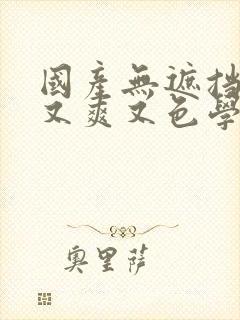 國產無遮挡
又爽又色學
奧里萨